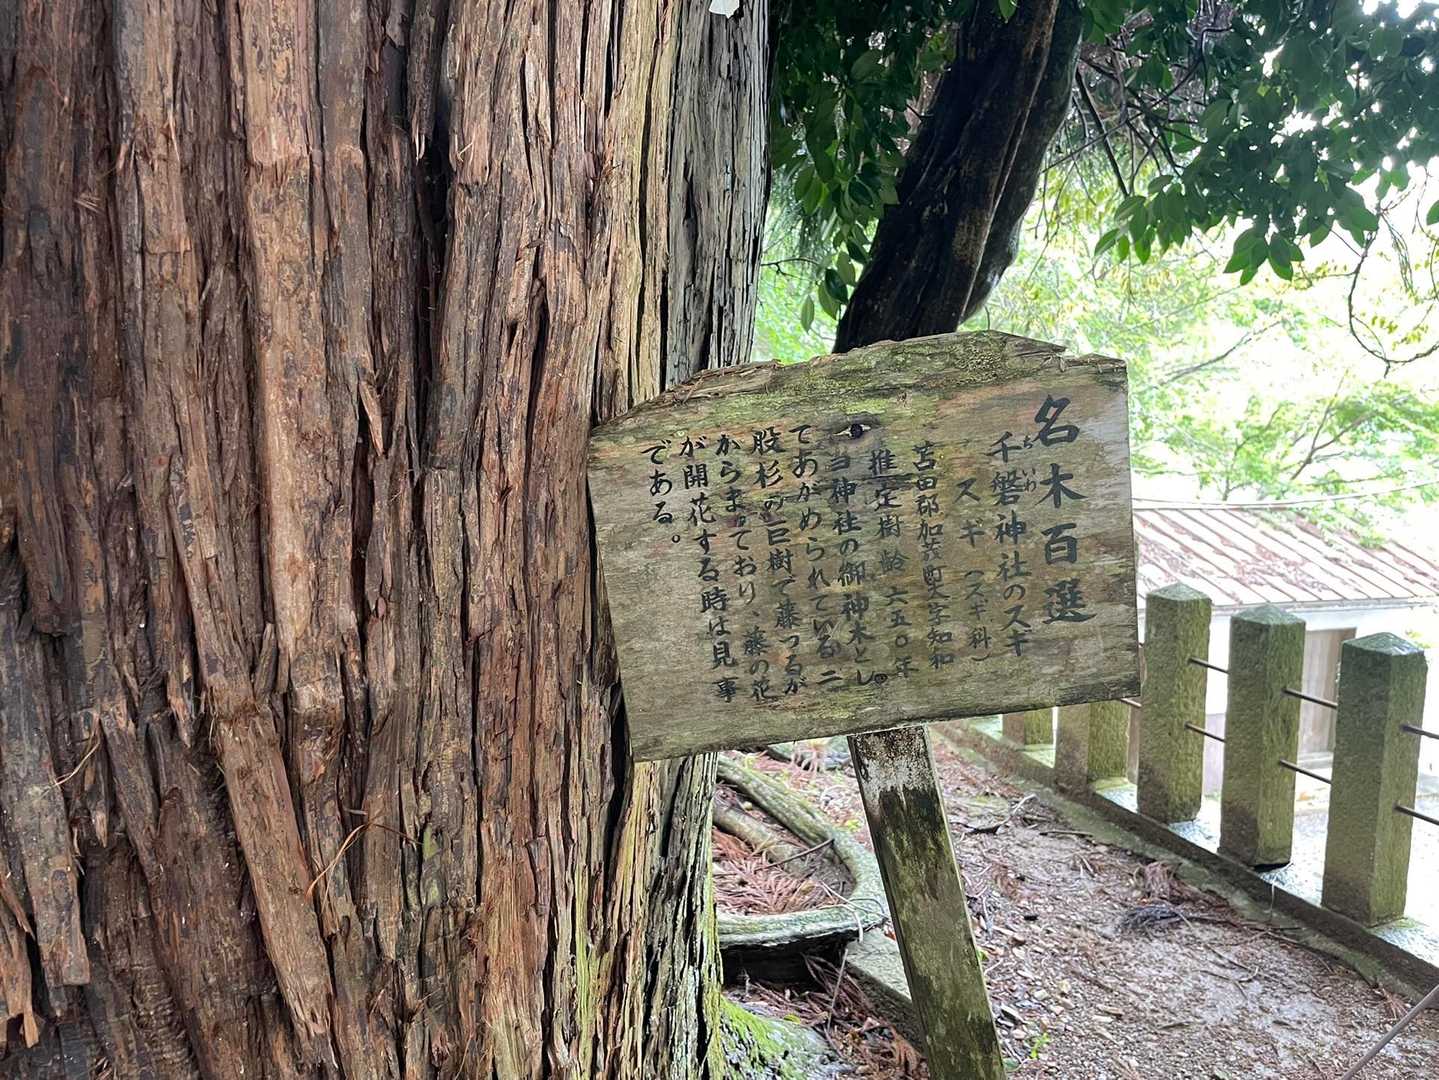 名木百選
千磐神社のスギ
ちいわ
スギ（スギ科）
苫田郡加茂町大字知和
推定樹齢 六五〇年
当神社の御神木とし
てあがめられている二
股杉の巨樹で藤づるが
からまっており、藤の花
が開花する時は見事
である。